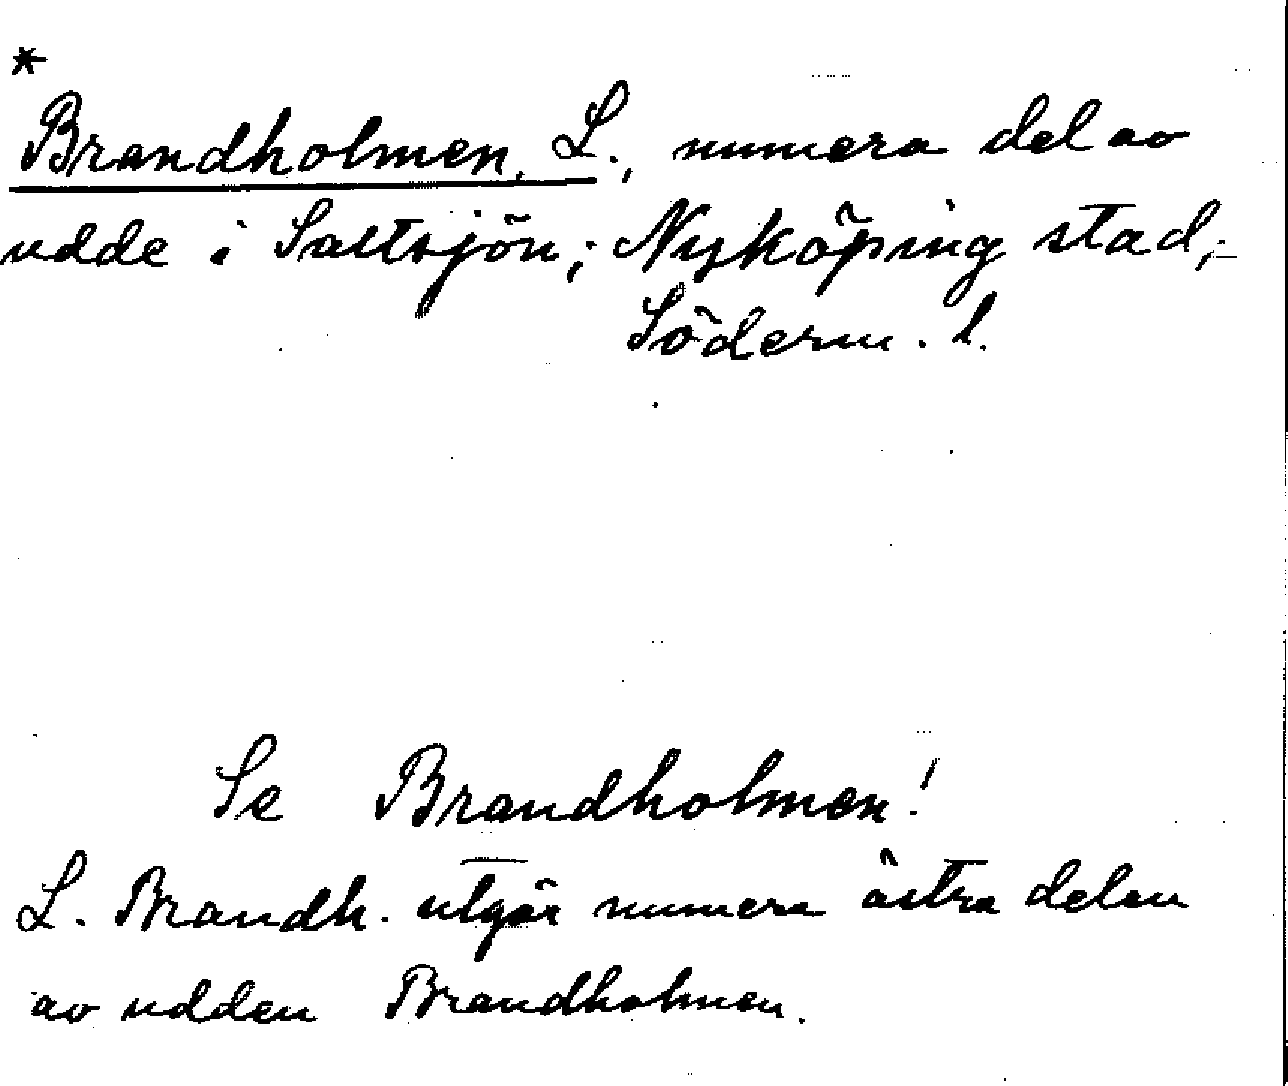 *
Brandholmen, L., numera del av
udde i Saltsjön; Nyköping stad,
Söderm. l.
Se Brandholmen!
L. Brandh. utgör numera östra delen
av udden Brandholmen.